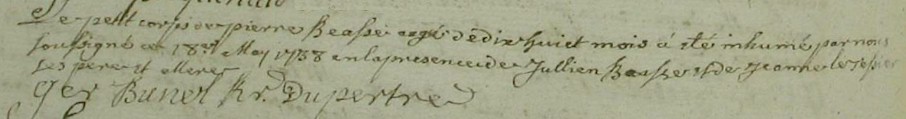 Le petit corps de pierre Beassé aagé de dix huiet mois á été inhumé par nous
soussigné ce 18e May 1738 en la presence de Jullien Beassé et de Jeanne le
ses pere et mere
Ger Bunel Kr. Dupertre